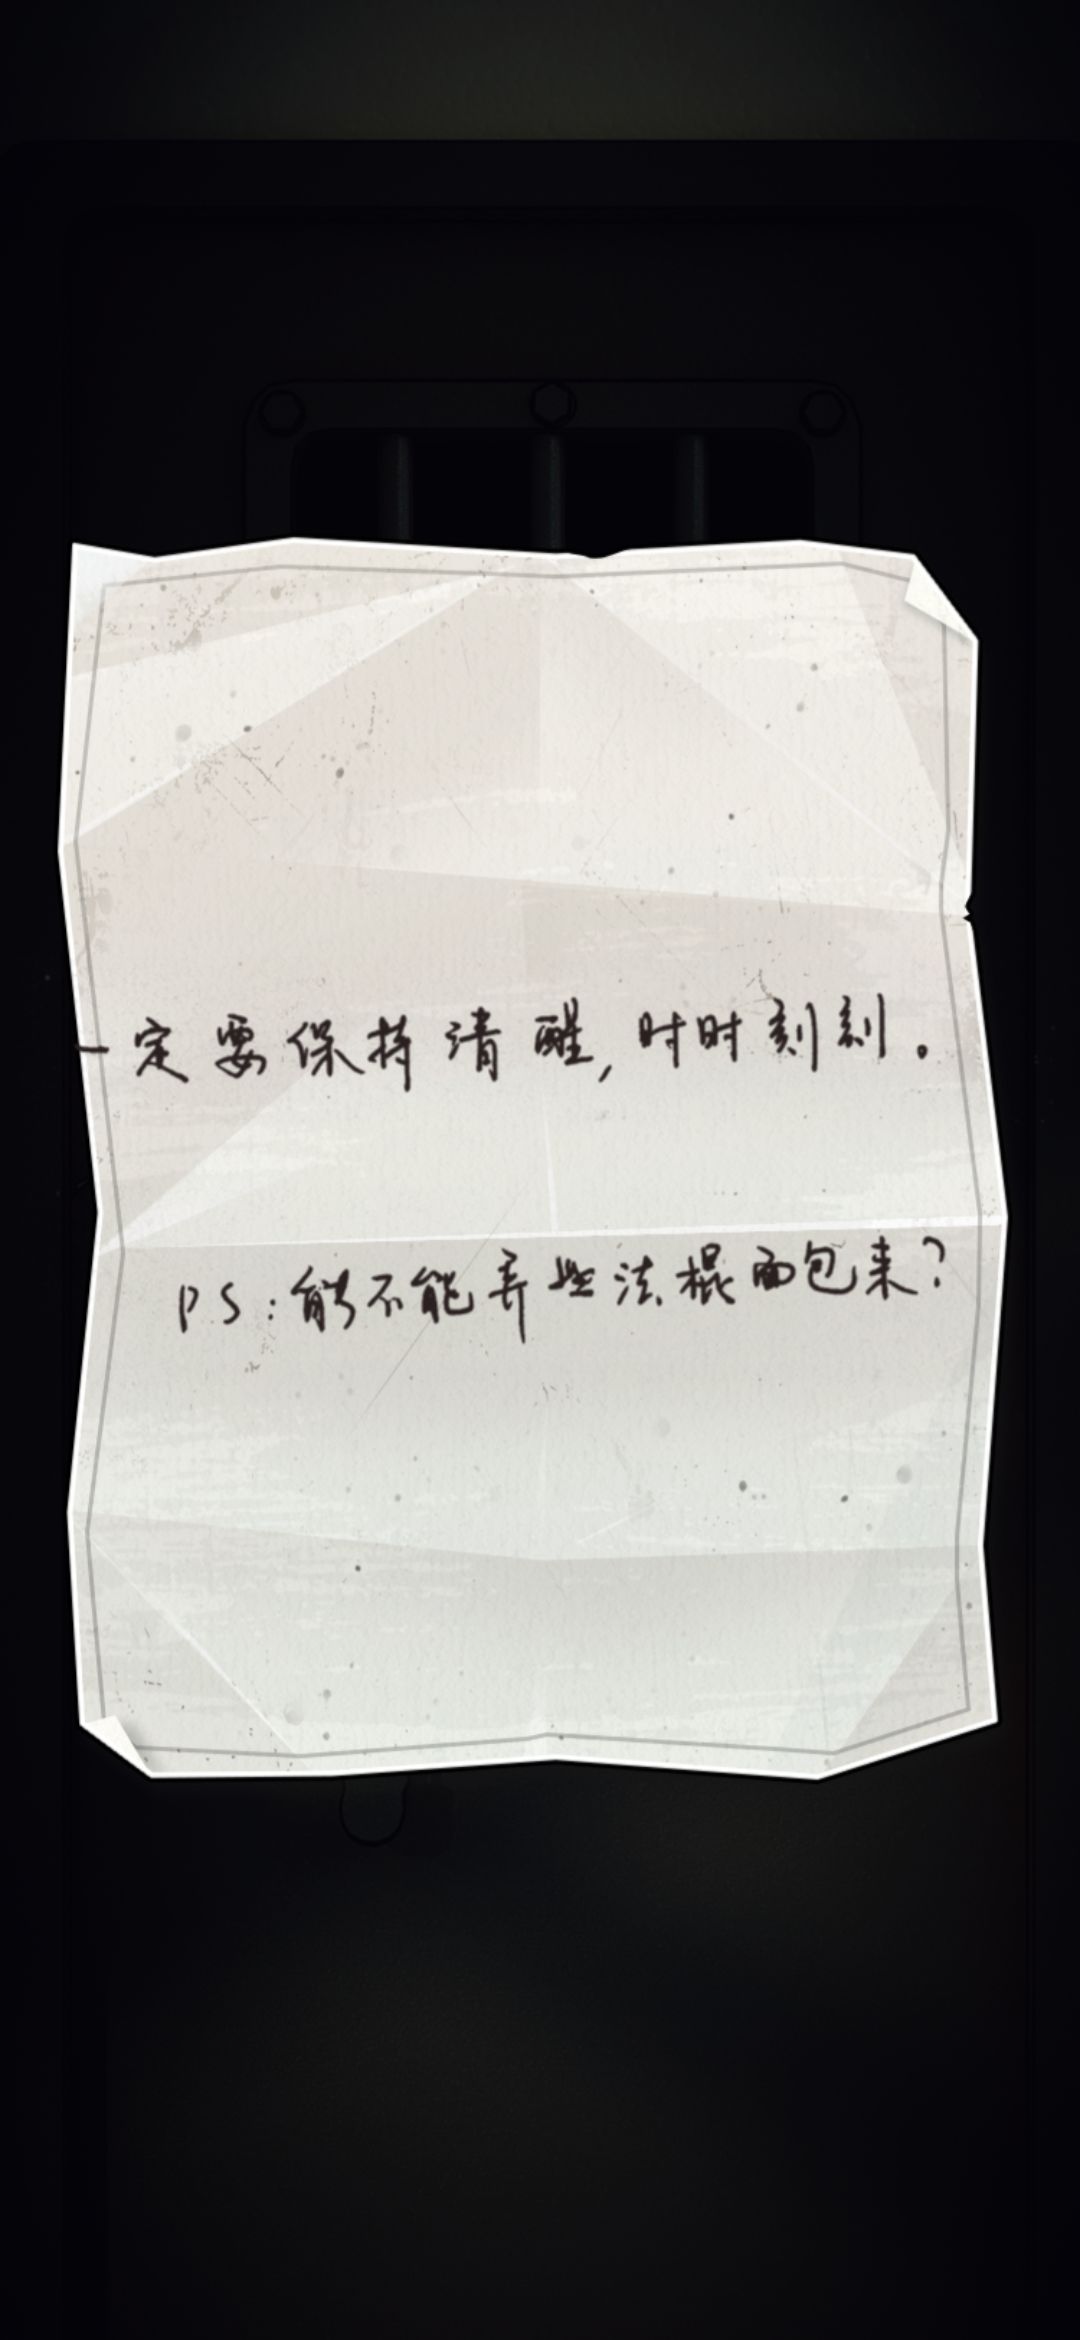 一定要保持清醒，时时刻刻。
PS：能不能弄些法棍面包来？